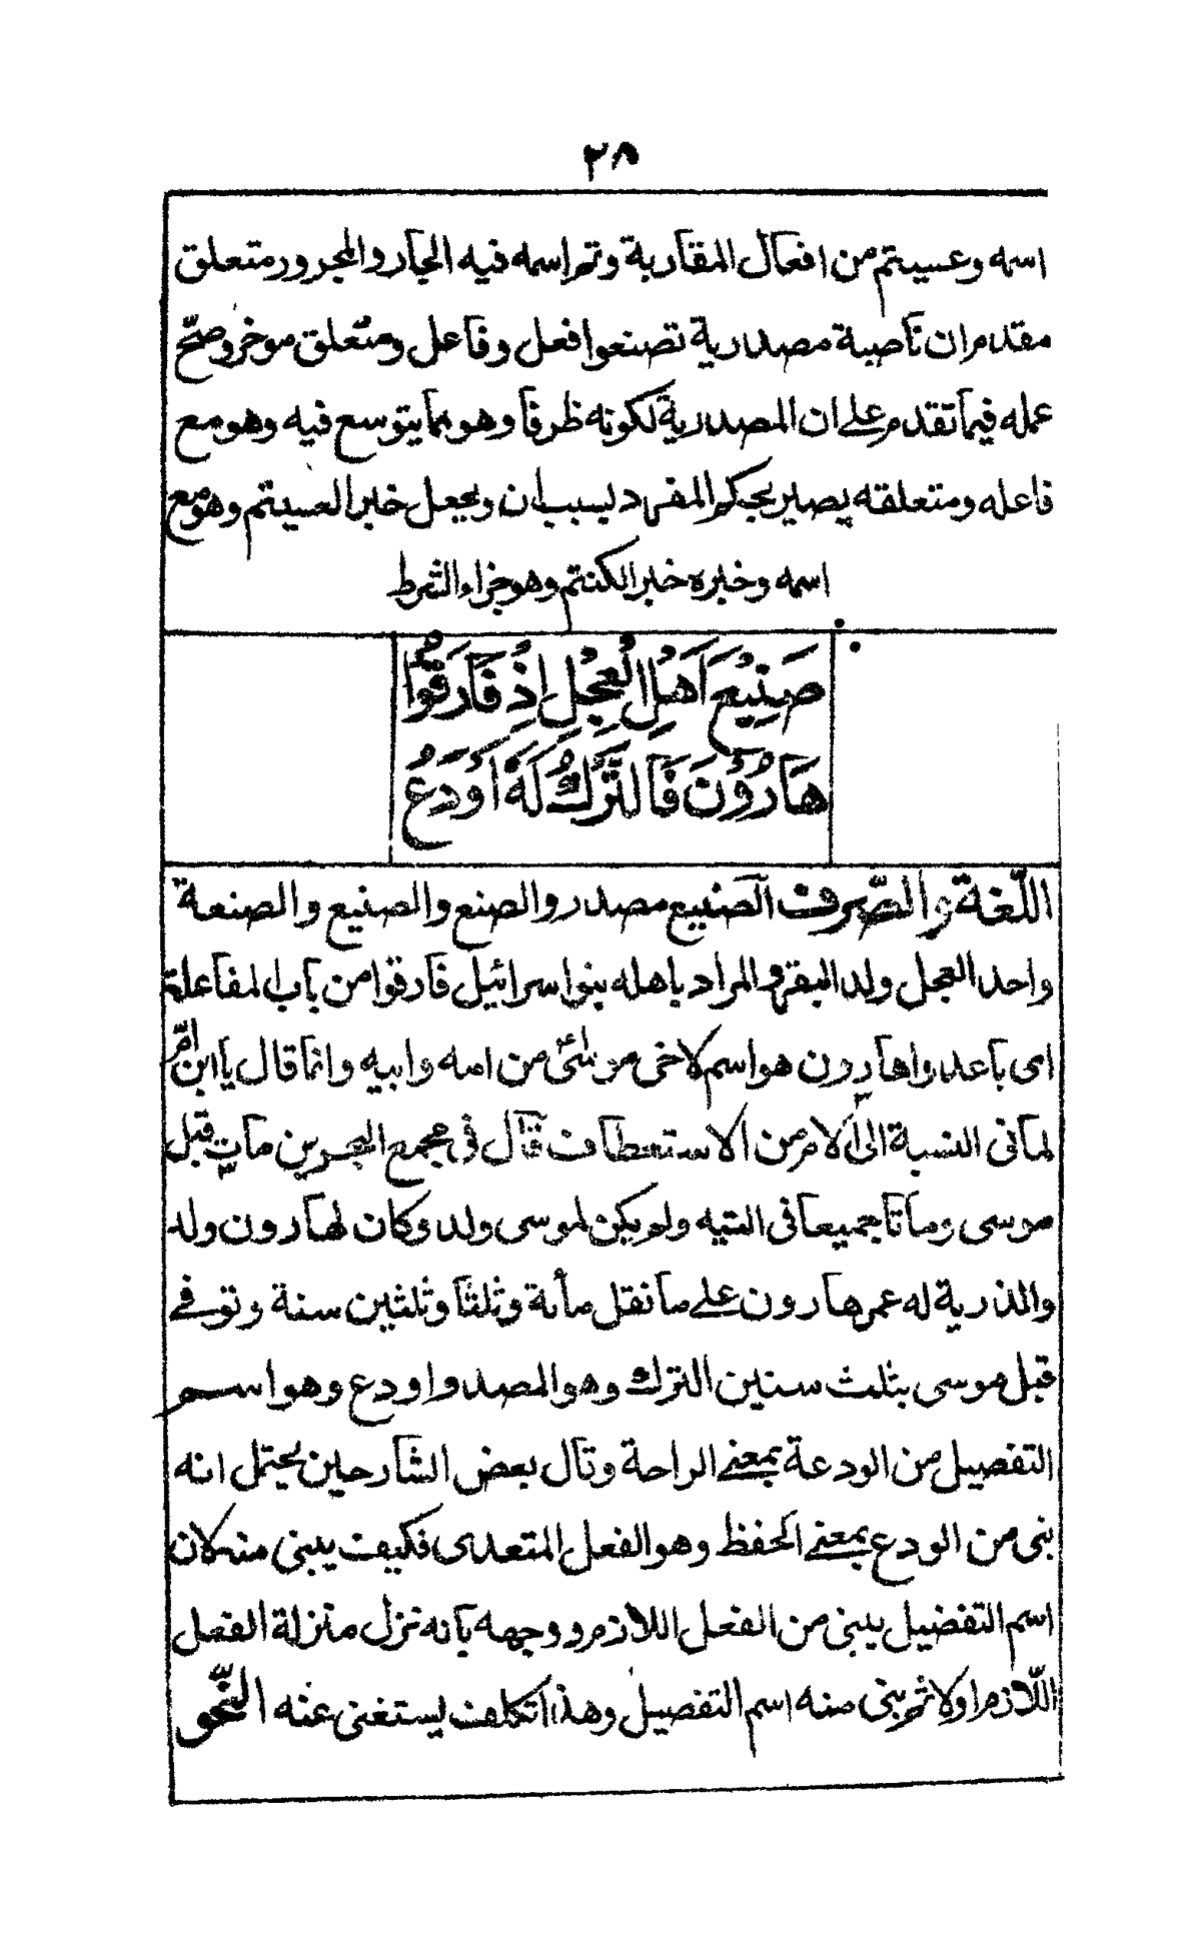 ٣٨
اسمه وعسيتم من افعال المقاربة وتم اسمه فيه الجار والمجرور متعلق
مقدم ان ناصبة مصدرية تصنعوا فعل وفاعل ومتعلق موخر وصحّ
عمله فيما تقدم على ان المصدرية لكونه ظرفا وهو مما يتوسع فيه وهو مع
فاعله ومتعلقه يصير بحكم المفرد بسبب ان ويجعل خبرا لعسيتم وهو مع
اسمه وخبره خبرا لكنتم وهو جزاء الشرط
صَنِيْعَ اَهْلِ الْعِجْلِ اِذْ فَارَقُوْا
هَارُوْنَ فَالتَّرْكُ لَهُ اَوْدَعُ
اللّغة والصّرف الصنيع مصدر والصنع والصنيع والصنعة
واحد العجل ولد البقر والمراد باهله بنو اسرائيل فارقوا من باب المفاعلة
اى باعدوا هارون هو اسم لاخى موسٰى من امه وابيه وانما قال يا ابن امّ
لما فى النسبة الى الام من الاستعطاف قال فى مجمع البحرين مات قبل
موسى وماتا جميعا فى التيه ولم يكن لموسى ولد وكان لهارون ولد
والذرية له عمر هارون على ما نقل مأئة وثلثا وثلثين سنة وتوفى
قبل موسى بثلث سنين الترك وهو المصدر اودع وهو اسم
التفصيل من الودعة بمعنى الراحة وقال بعض الشارحين يحتمل انه
بنى من الودع بمعنى الحفظ وهو الفعل المتعدى فكيف يبنى منه لان
اسم التفضيل يبنى من الفعل اللازم ووجهه بانه نزل منزلة الفعل
اللّازم اولا ثم بنى منه اسم التفصيل وهذا تكلف يستغنى عنه النّحو